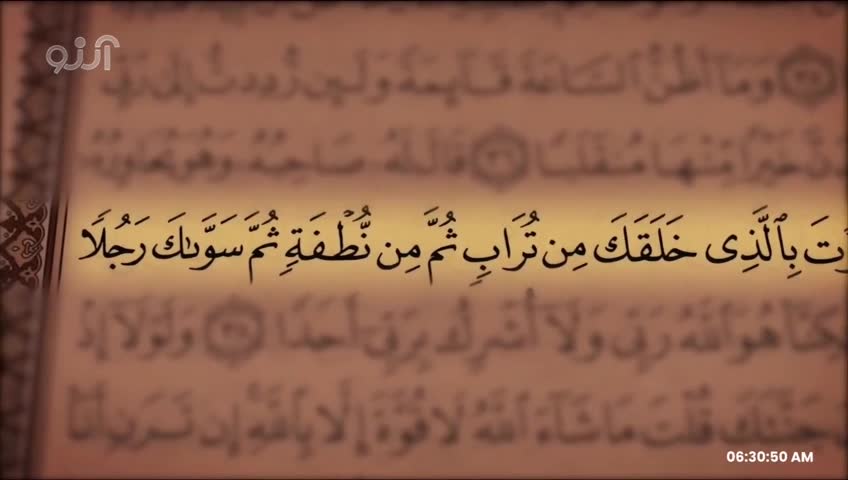 آرزو
وَمَا أَظُنُّ السَّاعَةَ قَائِمَةً وَلَئِن رُّدِدتُّ إِلَىٰ رَبِّي
خَيْرًا مِّنْهَا مُنقَلَبًا ٣٦ قَالَ لَهُ صَاحِبُهُ وَهُوَ يُحَاوِرُهُ
بِٱلَّذِى خَلَقَكَ مِن تُرَابٍ ثُمَّ مِن نُّطْفَةٍ ثُمَّ سَوَّىٰكَ رَجُلًا
هُوَ اللَّهُ رَبِّي وَلَا أُشْرِكُ بِرَبِّي أَحَدًا ٣٨ وَلَوْلَا إِذْ
جَنَّتَكَ قُلْتَ مَا شَاءَ اللَّهُ لَا قُوَّةَ إِلَّا بِاللَّهِ إِن تَرَنِ أَنَا
06:30:50 AM